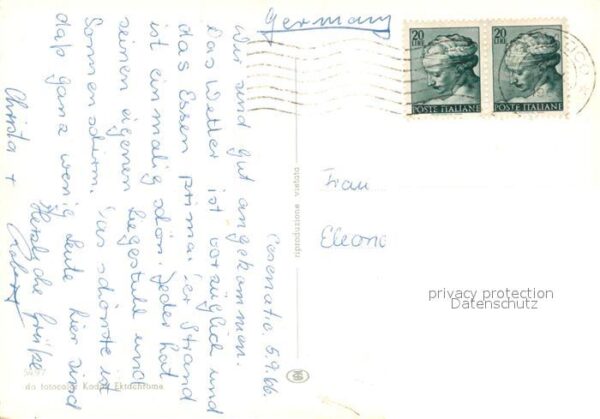 Germany
20
LIRE
POSTE ITALIANE
20
LIRE
POSTE ITALIANE
Cesenatico, 5.9.66.
Wir sind gut angekommen.
Das Wetter ist vorzüglich und
das Essen prima. Der Strand
ist einmalig schön. Jeder hat
seinen eigenen Liegestuhl und
Sonnenschirm. Das schönste ist
daß ganz wenig Leute hier sind
Herzliche Grüße
Christa +
Robert
riproduzione vietata
Frau
Eleono
privacy protection
Datenschutz
da fotocolor Kodak Ektachrome